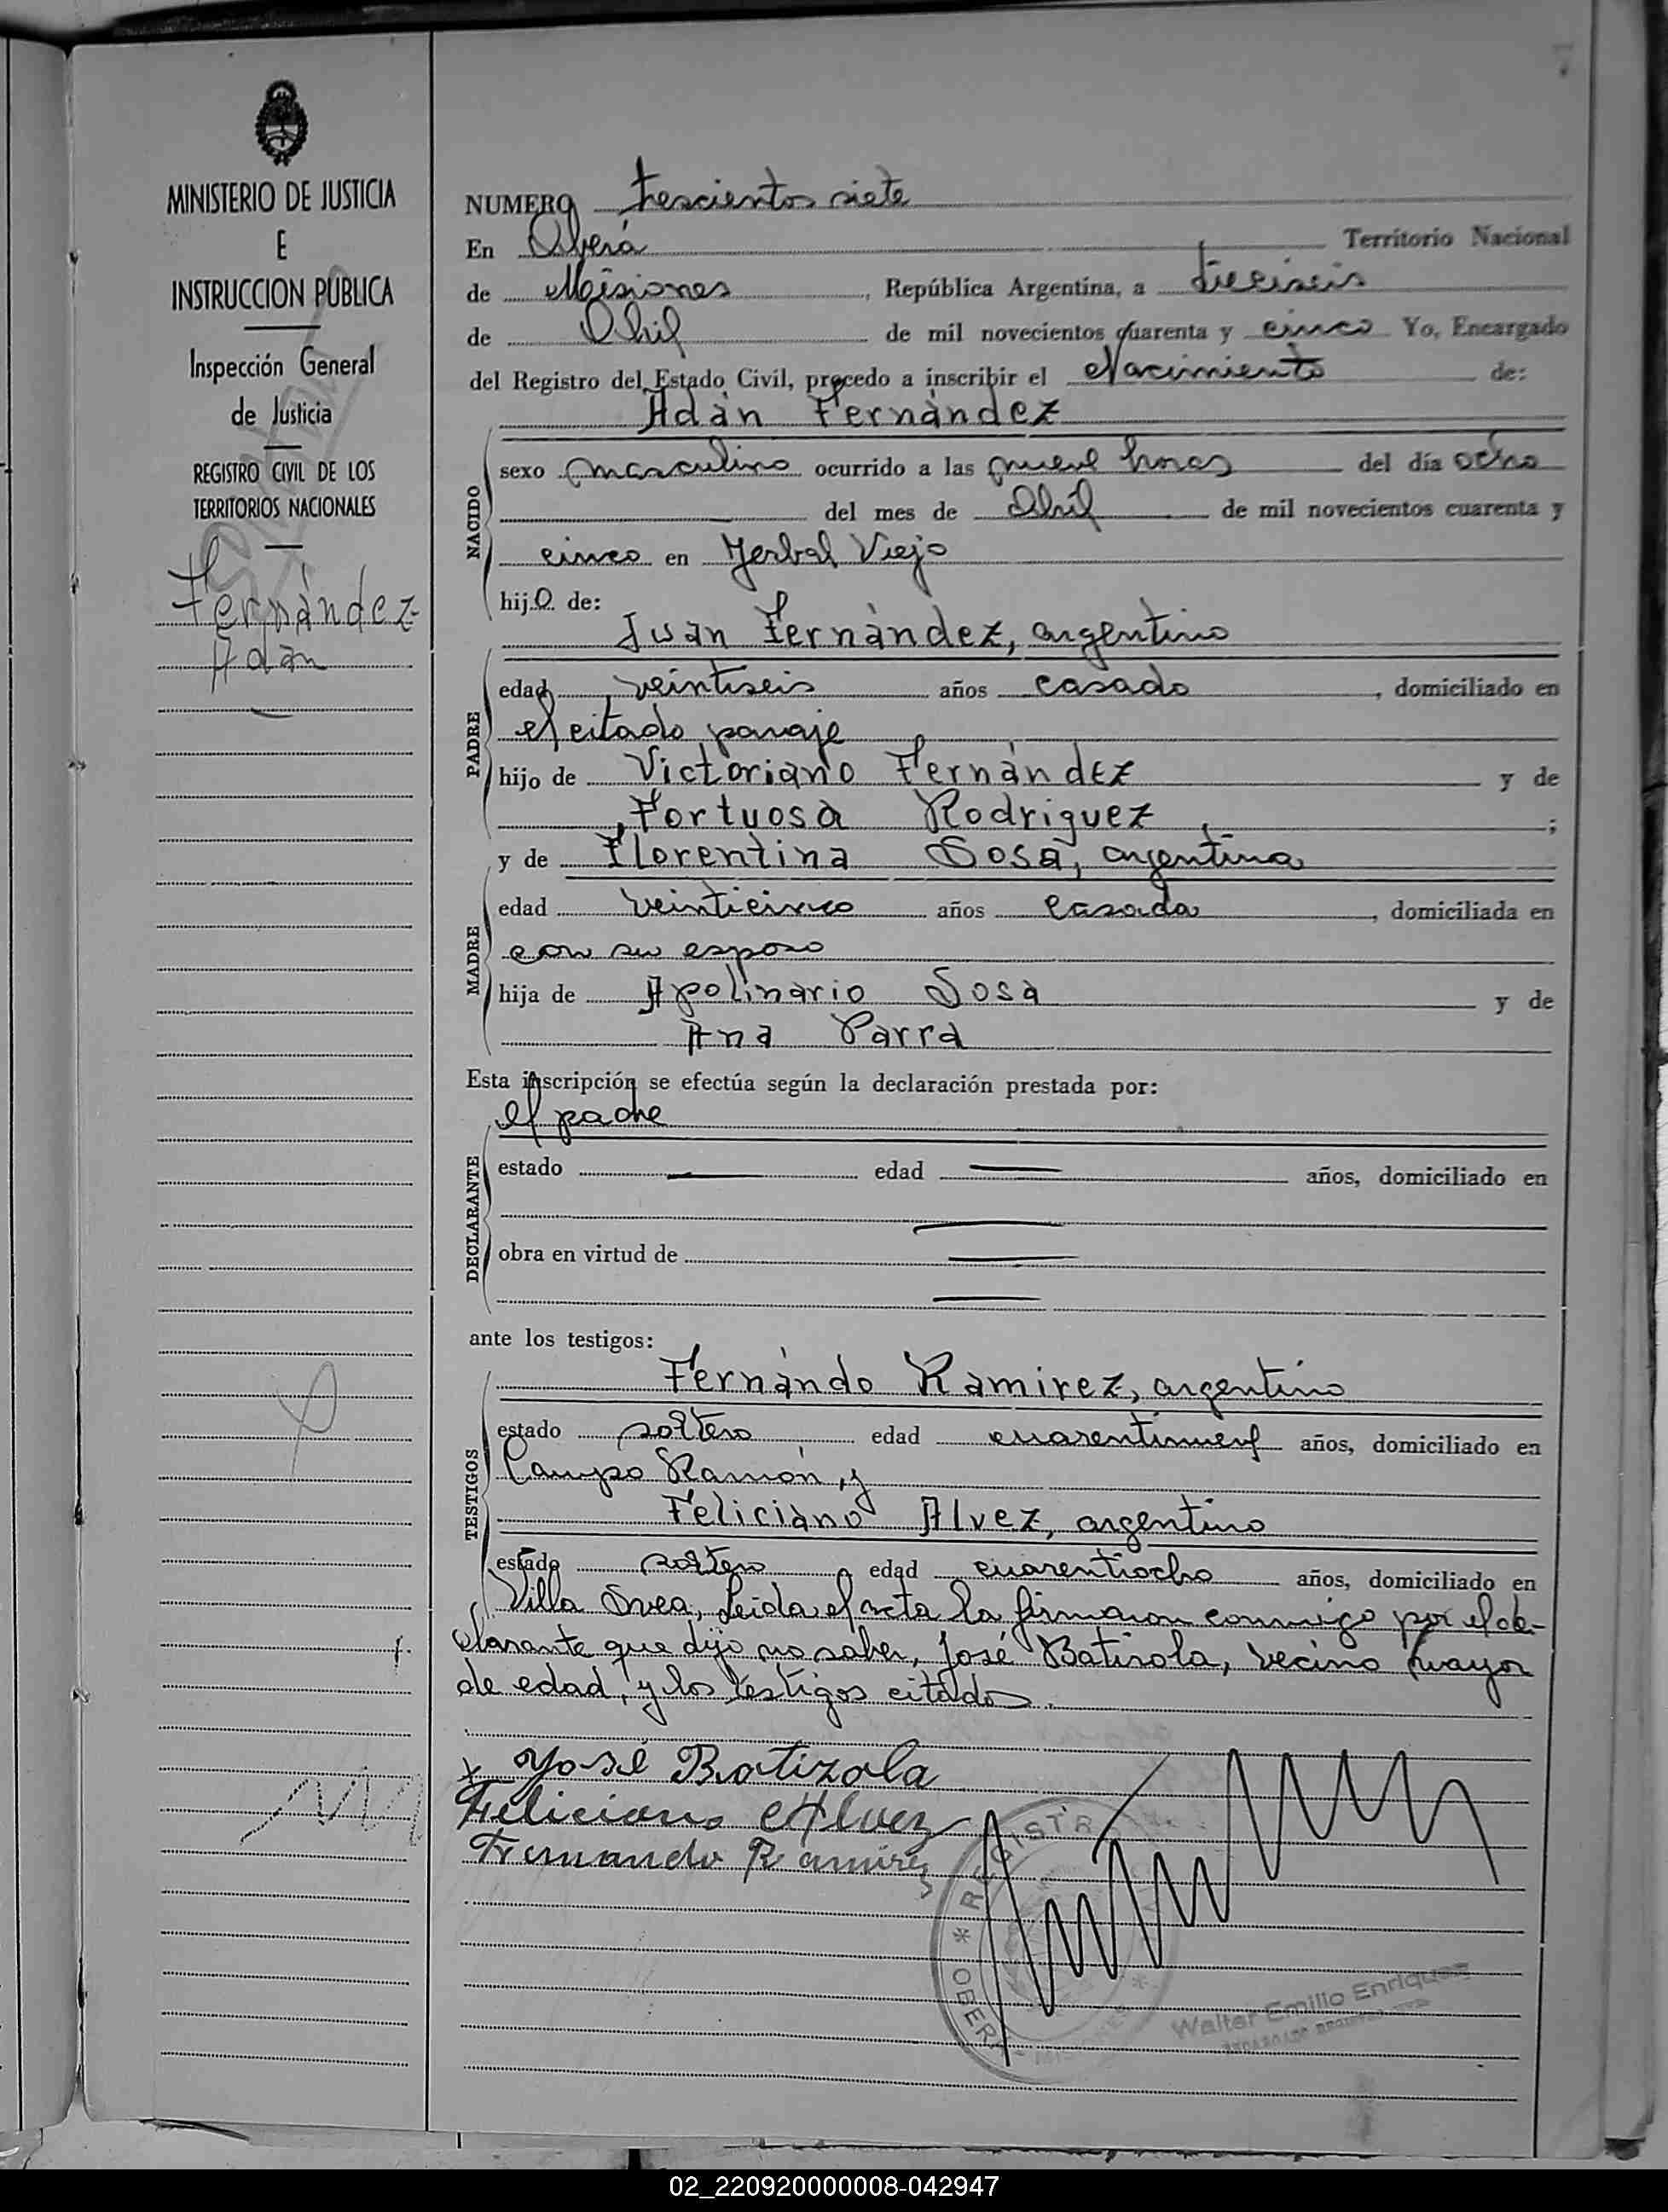 MINISTERIO DE JUSTICIA
E
INSTRUCCION PUBLICA
Inspección General
de Justicia
REGISTRO CIVIL DE LOS
TERRITORIOS NACIONALES
Fernández
Adán
NUMERO trescientos siete
En Oberá Territorio Nacional
de Misiones, República Argentina, a dieciseis
de Abril de mil novecientos cuarenta y cinco Yo, Encargado
del Registro del Estado Civil, procedo a inscribir el Nacimiento de:
Adán Fernández
NACIDO
sexo masculino ocurrido a las nueve horas del día ocho
del mes de Abril de mil novecientos cuarenta y
cinco en Yerbal Viejo
hijo de:
Juan Fernández, argentino
PADRE
edad veintiseis años casado, domiciliado en
el citado paraje
hijo de Victoriano Fernández y de
Fortuosa Rodriguez ;
y de Florentina Sosa, argentina
MADRE
edad veinticinco años casada, domiciliada en
con su esposo
hija de Apolinario Sosa y de
Ana Parra
Esta inscripción se efectúa según la declaración prestada por:
el padre
DECLARANTE
estado edad años, domiciliado en
obra en virtud de
ante los testigos:
TESTIGOS
Fernándo Ramirez, argentino
estado soltero edad cuarentinueve años, domiciliado en
Campo Ramón, y
Feliciano Alvez, argentino
estado soltero edad cuarentiocho años, domiciliado en
Villa Svea, Leida el acta la firmaron conmigo por el de-
clarante que dijo no saber, José Batirola, vecino mayor
de edad, y los testigos citados.
José Batizola
Feliciano Alvez
Fernando Ramirez
REGISTR
OBERA
Walter Emilio Enriquez
02_220920000008-042947